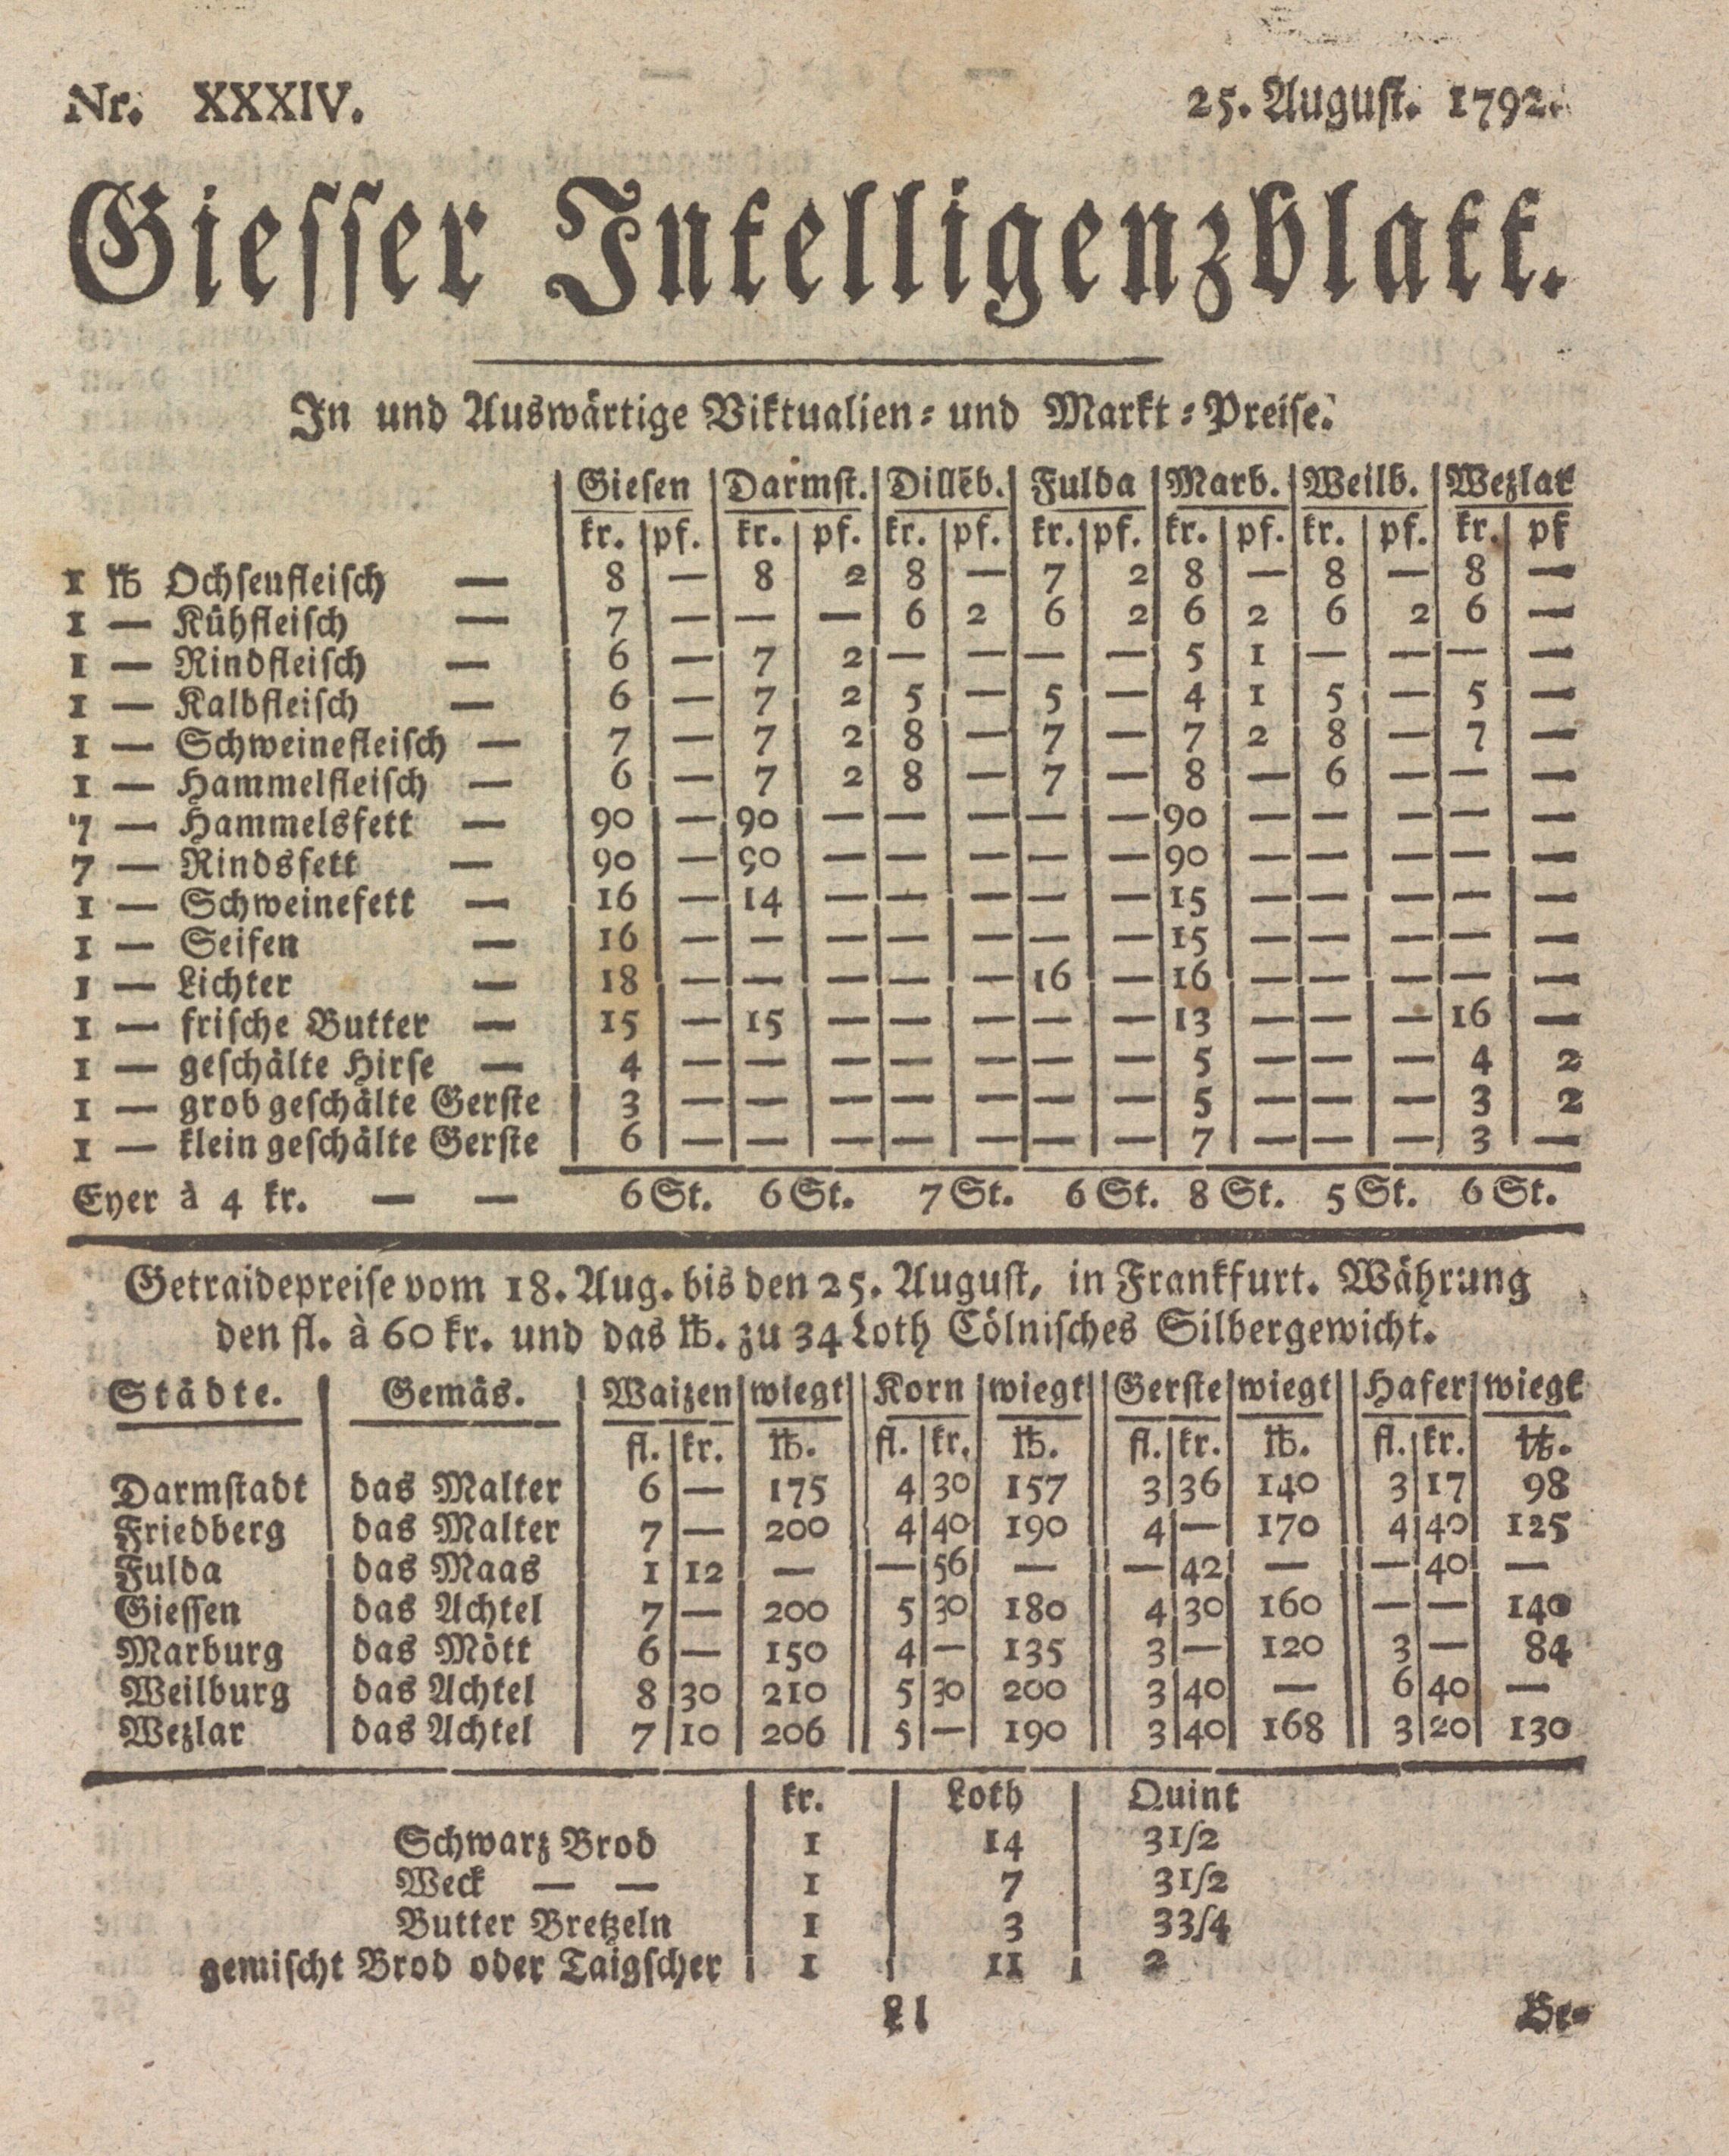 Nr. XXXIV. 25. August. 1792.
Giesser Intelligenzblatt.
In und Auswärtige Viktualien- und Markt-Preise.
Giesen Darmst. Dillēb. Fulda Marb. Weilb. Wezlar
kr. pf. kr. pf. kr. pf. kr. pf. kr. pf. kr. pf. kr. pf
1 ℔ Ochsenfleisch — 8 — 8 2 8 — 7 2 8 — 8 — 8 —
1 — Kühfleisch — 7 — — — 6 2 6 2 6 2 6 2 6 —
1 — Rindfleisch — 6 — 7 2 — — — — 5 1 — — — —
1 — Kalbfleisch — 6 — 7 2 5 — 5 — 4 1 5 — 5 —
1 — Schweinefleisch — 7 — 7 2 8 — 7 — 7 2 8 — 7 —
1 — Hammelfleisch — 6 — 7 2 8 — 7 — 8 — 6 — — —
7 — Hammelsfett — 90 — 90 — — — — — 90 — — — — —
7 — Rindsfett — 90 — 90 — — — — — 90 — — — — —
1 — Schweinefett — 16 — 14 — — — — — 15 — — — — —
1 — Seifen — 16 — — — — — — — 15 — — — — —
1 — Lichter — 18 — — — — — 16 — 16 — — — — —
1 — frische Butter — 15 — 15 — — — — — 13 — — — 16 —
1 — geschälte Hirse — 4 — — — — — — — 5 — — — 4 2
1 — grob geschälte Gerste 3 — — — — — — — 5 — — — 3 2
1 — klein geschälte Gerste 6 — — — — — — — 7 — — — 3 —
Eyer à 4 kr. — — 6 St. 6 St. 7 St. 6 St. 8 St. 5 St. 6 St.
Getraidepreise vom 18. Aug. bis den 25. August, in Frankfurt. Währung
den fl. à 60 kr. und das ℔. zu 34 Loth Cölnisches Silbergewicht.
Städte. Gemäs. Waizen wiegt Korn wiegt Gerste wiegt Hafer wiegt
fl. kr. ℔. fl. kr. ℔. fl. kr. ℔. fl. kr. ℔.
Darmstadt das Malter 6 — 175 4 30 157 3 36 140 3 17 98
Friedberg das Malter 7 — 200 4 40 190 4 — 170 4 40 125
Fulda das Maas 1 12 — — 56 — — 42 — — 40 —
Giessen das Achtel 7 — 200 5 30 180 4 30 160 — — 140
Marburg das Mött 6 — 150 4 — 135 3 — 120 3 — 84
Weilburg das Achtel 8 30 210 5 30 200 3 40 — 6 40 —
Wezlar das Achtel 7 10 206 5 — 190 3 40 168 3 20 130
kr. Loth Quint
Schwarz Brod 1 14 3 1/2
Weck — — 1 7 3 1/2
Butter Bretzeln 1 3 3 3/4
gemischt Brod oder Taigscher 1 11 2
Ll Be-